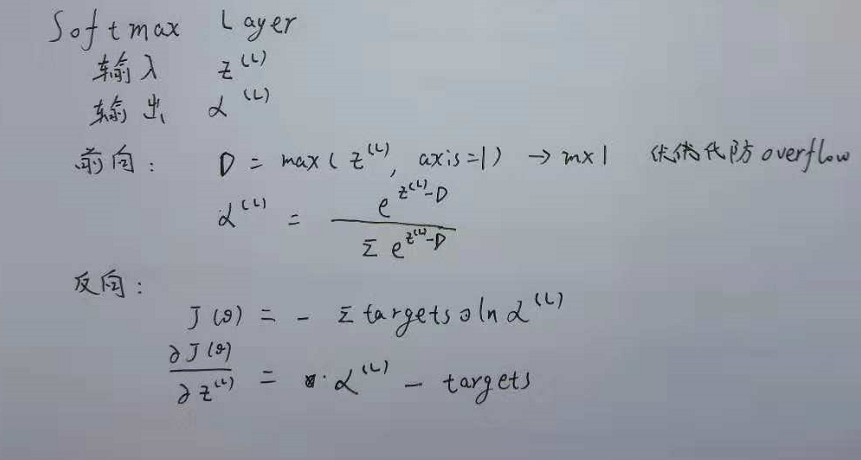 Softmax Layer
输入 z^(L)
输出 α^(L)
前向: D = max(z^(L), axis=1) → m×1 防overflow
α^(L) = e^(z^(L)-D) / Σ e^(z^(L)-D)
反向:
J(θ) = - Σ targets∘ln α^(L)
∂J(θ)/∂z^(L) = α^(L) - targets